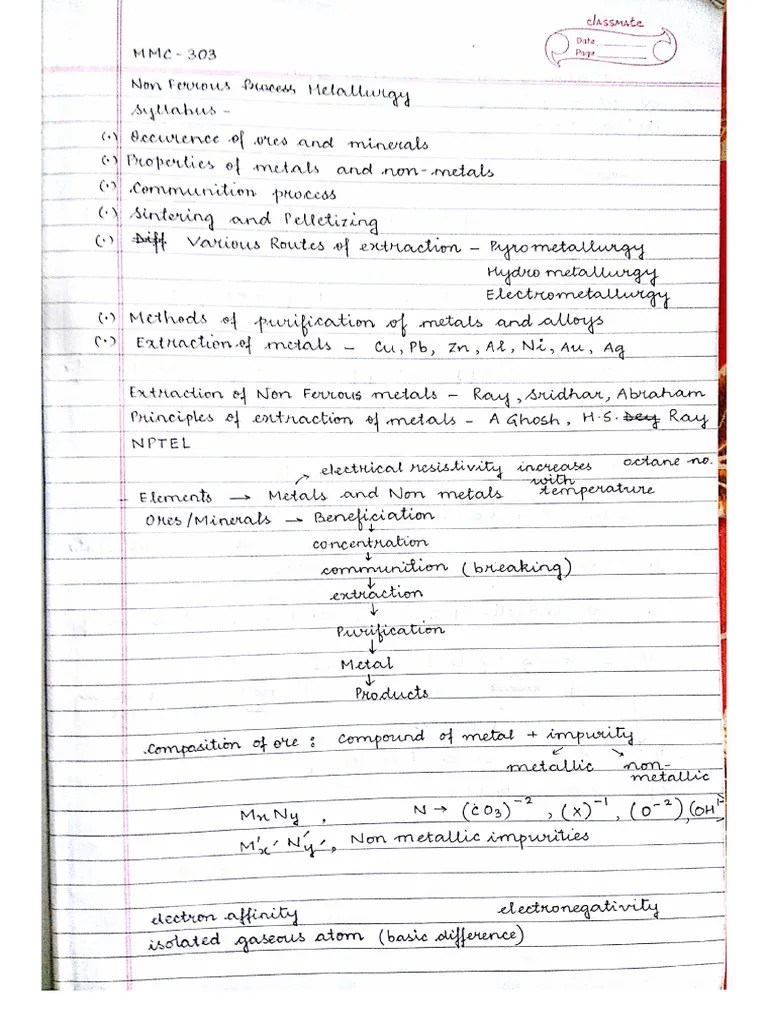 classmate
Date
Page
MMC - 303
Non Ferrous Process Metallurgy
Syllabus -
(·) Occurence of ores and minerals
(·) Properties of metals and non-metals
(·) Communition process
(·) Sintering and Pelletizing
(·) Diff Various Routes of extraction - Pyrometallurgy
Hydrometallurgy
Electrometallurgy
(·) Methods of purification of metals and alloys
(·) Extraction of metals - Cu, Pb, Zn, Al, Ni, Au, Ag
Extraction of Non Ferrous metals - Ray, Sridhar, Abraham
Principles of extraction of metals - A Ghosh, H.S. Dey Ray
NPTEL
electrical resistivity increases octane no.
with
Elements → Metals and Non metals temperature
Ores/Minerals → Beneficiation
↓
concentration
↓
communition (breaking)
↓
extraction
↓
Purification
↓
Metal
↓
Products
Composition of ore : Compound of metal + impurity
metallic non-
metallic
MxNy , N → (CO3)⁻², (X)⁻¹, (O⁻²), (OH⁻
M'x' N'y', Non metallic impurities
electron affinity electronegativity
isolated gaseous atom (basic difference)